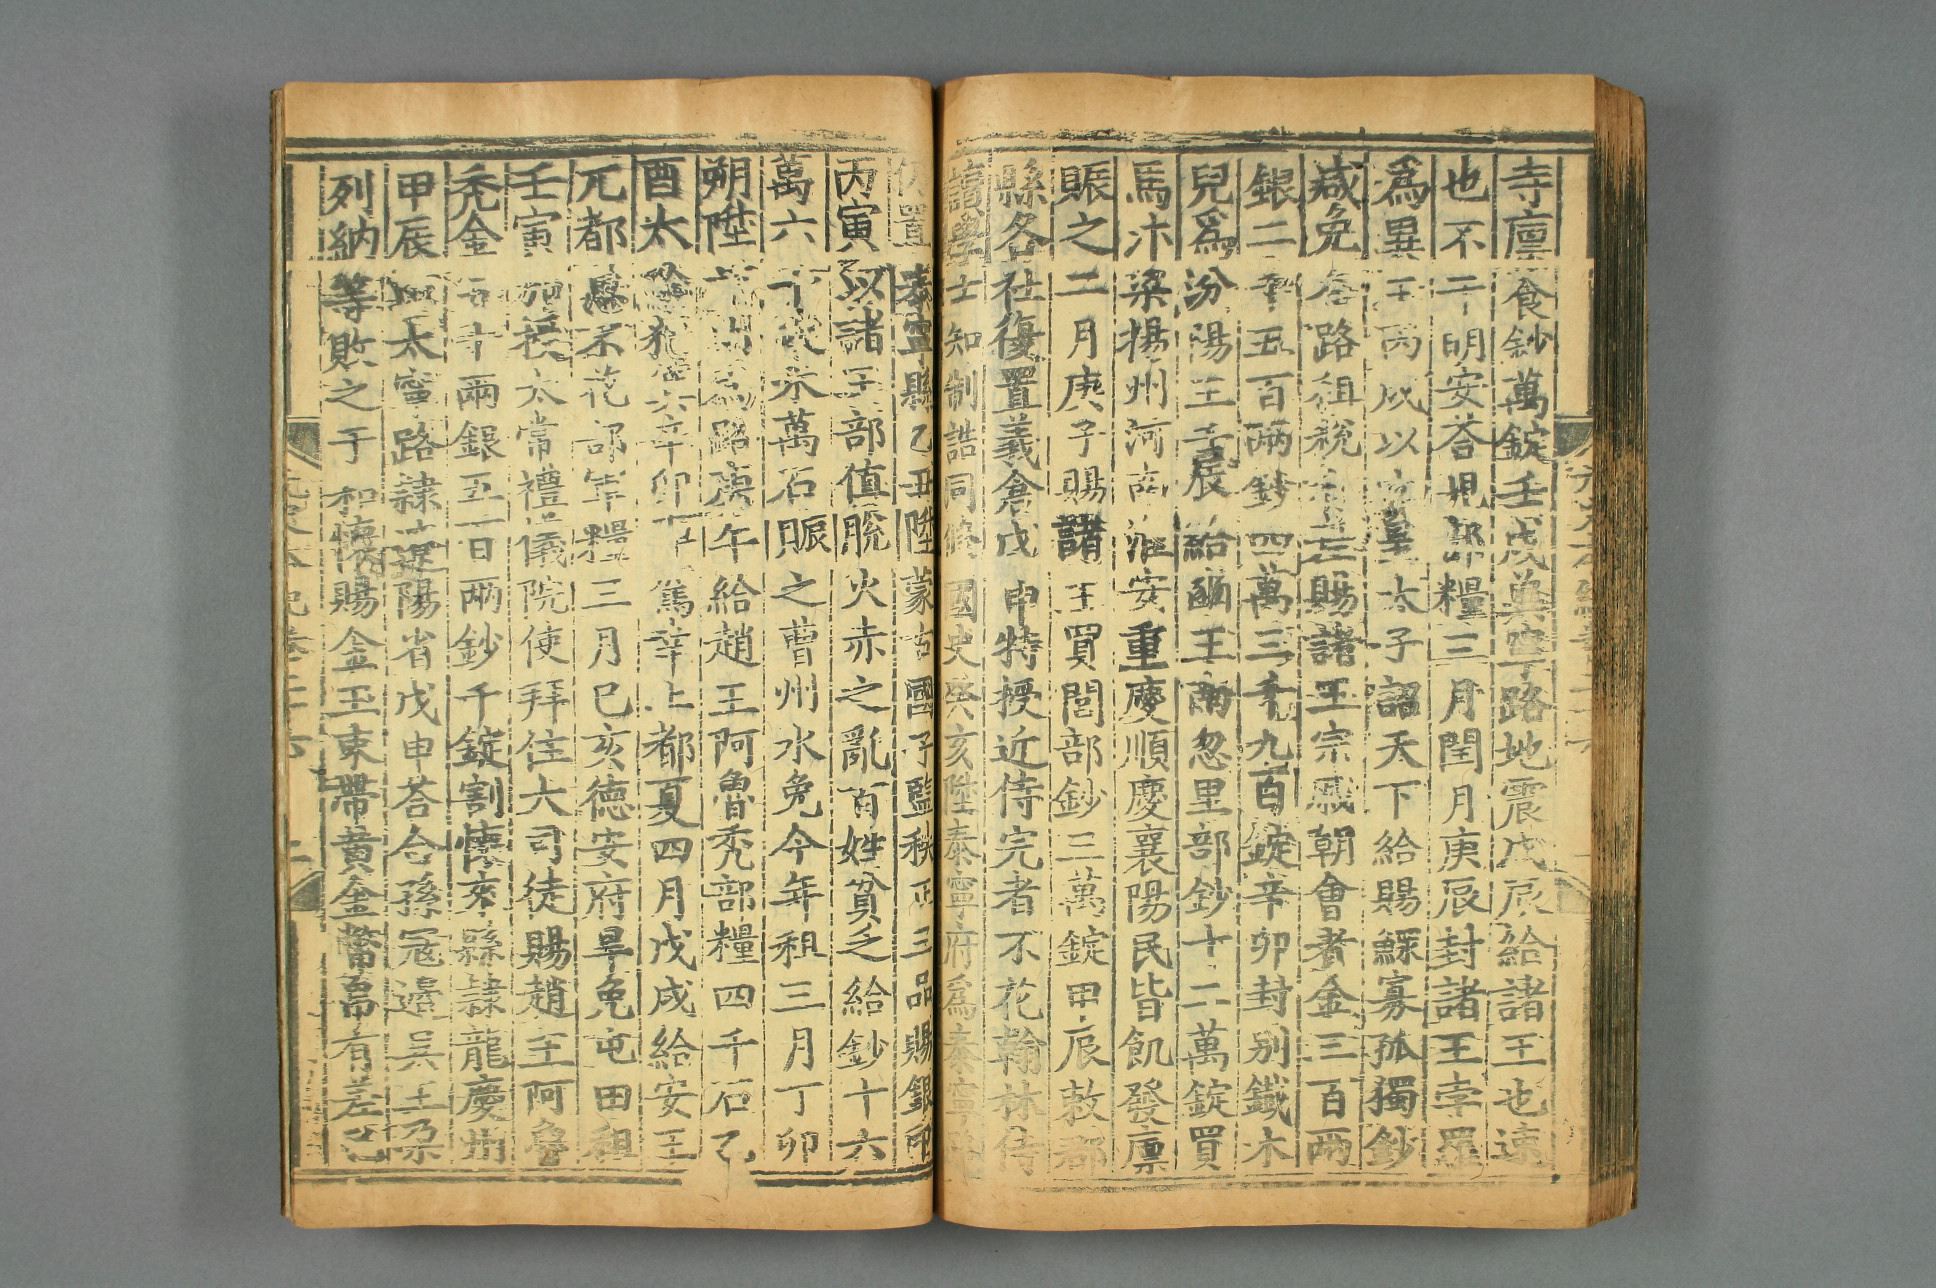 寺廩食鈔萬錠壬戌冀寧路地震戊辰給諸王也速
也不干明安荅兒部糧三月閏月庚辰封諸王孛羅
爲冀王丙戌以立皇太子詔天下給賜鰥寡孤獨鈔
減免各路租稅有差賜諸王宗戚朝會者金三百兩
銀二千五百兩鈔四萬三千九百錠辛卯封别鐵木
兒爲汾陽王壬辰給豳王南忽里部鈔十二萬錠買
馬汴梁揚州河南淮安重慶順慶襄陽民皆飢發廩
賑之二月庚子賜諸王買閭部鈔三萬錠甲辰敕郡
縣各社復置義倉戊申特授近侍完者不花翰林侍
讀學士知制誥同修國史癸亥陞泰寧府爲泰寧路
仍置泰寧縣乙丑陞蒙古國子監秩正三品賜銀印
丙寅以諸王部值脫火赤之亂百姓貧乏給鈔十六
萬六千錠米萬石賑之曹州水免今年租三月丁卯
朔陞 庚午給趙王阿魯禿部糧四千石乙
酉太 辛卯 駕幸上都夏四月戊戌給安王
兀都思不花部軍糧三月己亥德安府旱免屯田租
壬寅 授太常禮儀院使拜住大司徒賜趙王阿魯
禿金五十兩銀五百兩鈔千錠割懷來縣隸龍慶州
甲辰 太寧路隸遼陽省戊申荅合孫冦邉吴王朶
列納等敗之于和懷賜金玉束帶黄金幣帛有差己